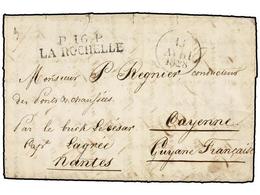 P. 16. P.
LA ROCHELLE
13
AVRIL
1828
Monsieur P. Regnier conducteur
des Ponts & chaussées
Par le brick Le César
Cape. Lagrée
Nantes
Cayenne
Guyane Française